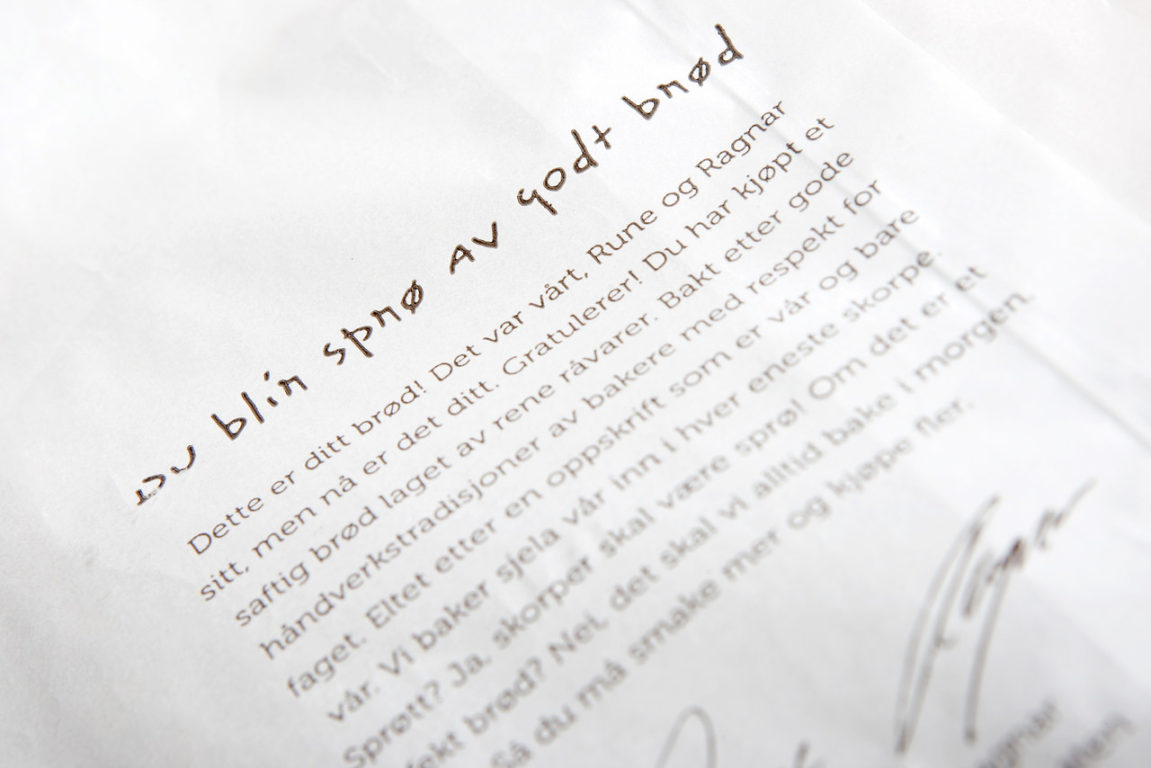 Du blir sprø av godt brød
Dette er ditt brød! Det var vårt, Rune og Ragnar
sitt, men nå er det ditt. Gratulerer! Du har kjøpt et
saftig brød laget av rene råvarer. Bakt etter gode
håndverkstradisjoner av bakere med respekt for
faget. Eltet etter en oppskrift som er vår og bare
vår. Vi baker sjela vår inn i hver eneste skorpe.
Sprøtt? Ja, skorper skal være sprø! Om det er et
fekt brød? Nei, det skal vi alltid bake i morgen.
Så du må smake mer og kjøpe fler.